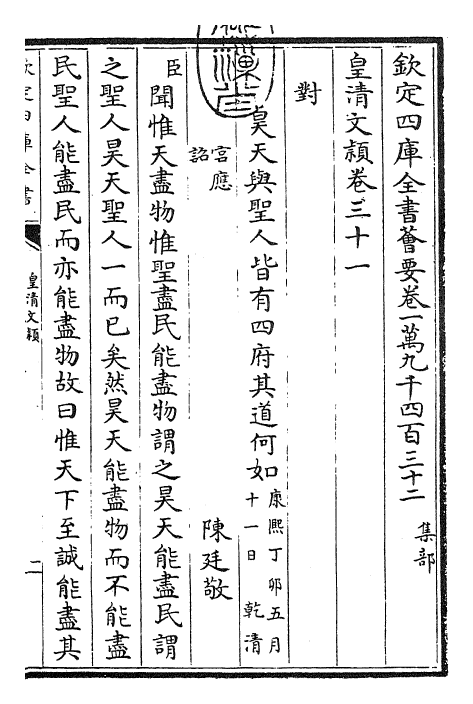 欽定四庫全書薈要卷一萬九千四百三十二 集部
皇清文穎卷三十一
對
昊天與聖人皆有四府其道何如 康熙丁卯五月十一日 乾清
宮應詔 陳廷敬
臣聞惟天盡物惟聖盡民能盡物謂之昊天能盡民謂
之聖人昊天聖人一而已矣然昊天能盡物而不能盡
民聖人能盡民而亦能盡物故曰惟天下至誠能盡其
欽定四庫全書
皇清文穎